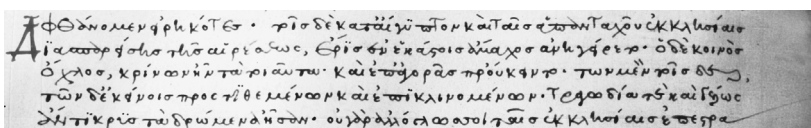 ἃ φθάνομεν εἰρηκότες· τοῖς δὲ κατ' αἴγυπτον καὶ ταῖς ἁπανταχοῦ ἐκκλησίαις
τῆς αἱρέσεως, ἔρις ἐν ἑκάστοις ἄμαχος ἀνηγείρετο· ὁ δὲ κοινὸς
ὄχλος, κρίνων ἦν τὰ τοιαῦτα· καὶ ἐπ' ἀγορᾶς προὔκειτο· τῶν μὲν τοῖσδε,
τῶν δὲ κείνοις προστιθεμένων καὶ ἐπικλινομένων· τραγωδία τὲ καὶ
ἀντικρὺς τὰ δρώμενα ἦσαν· οὐ γὰρ ἀλλόγλωσσοι ταῖς ἐκκλησίαις ἐπεστρα